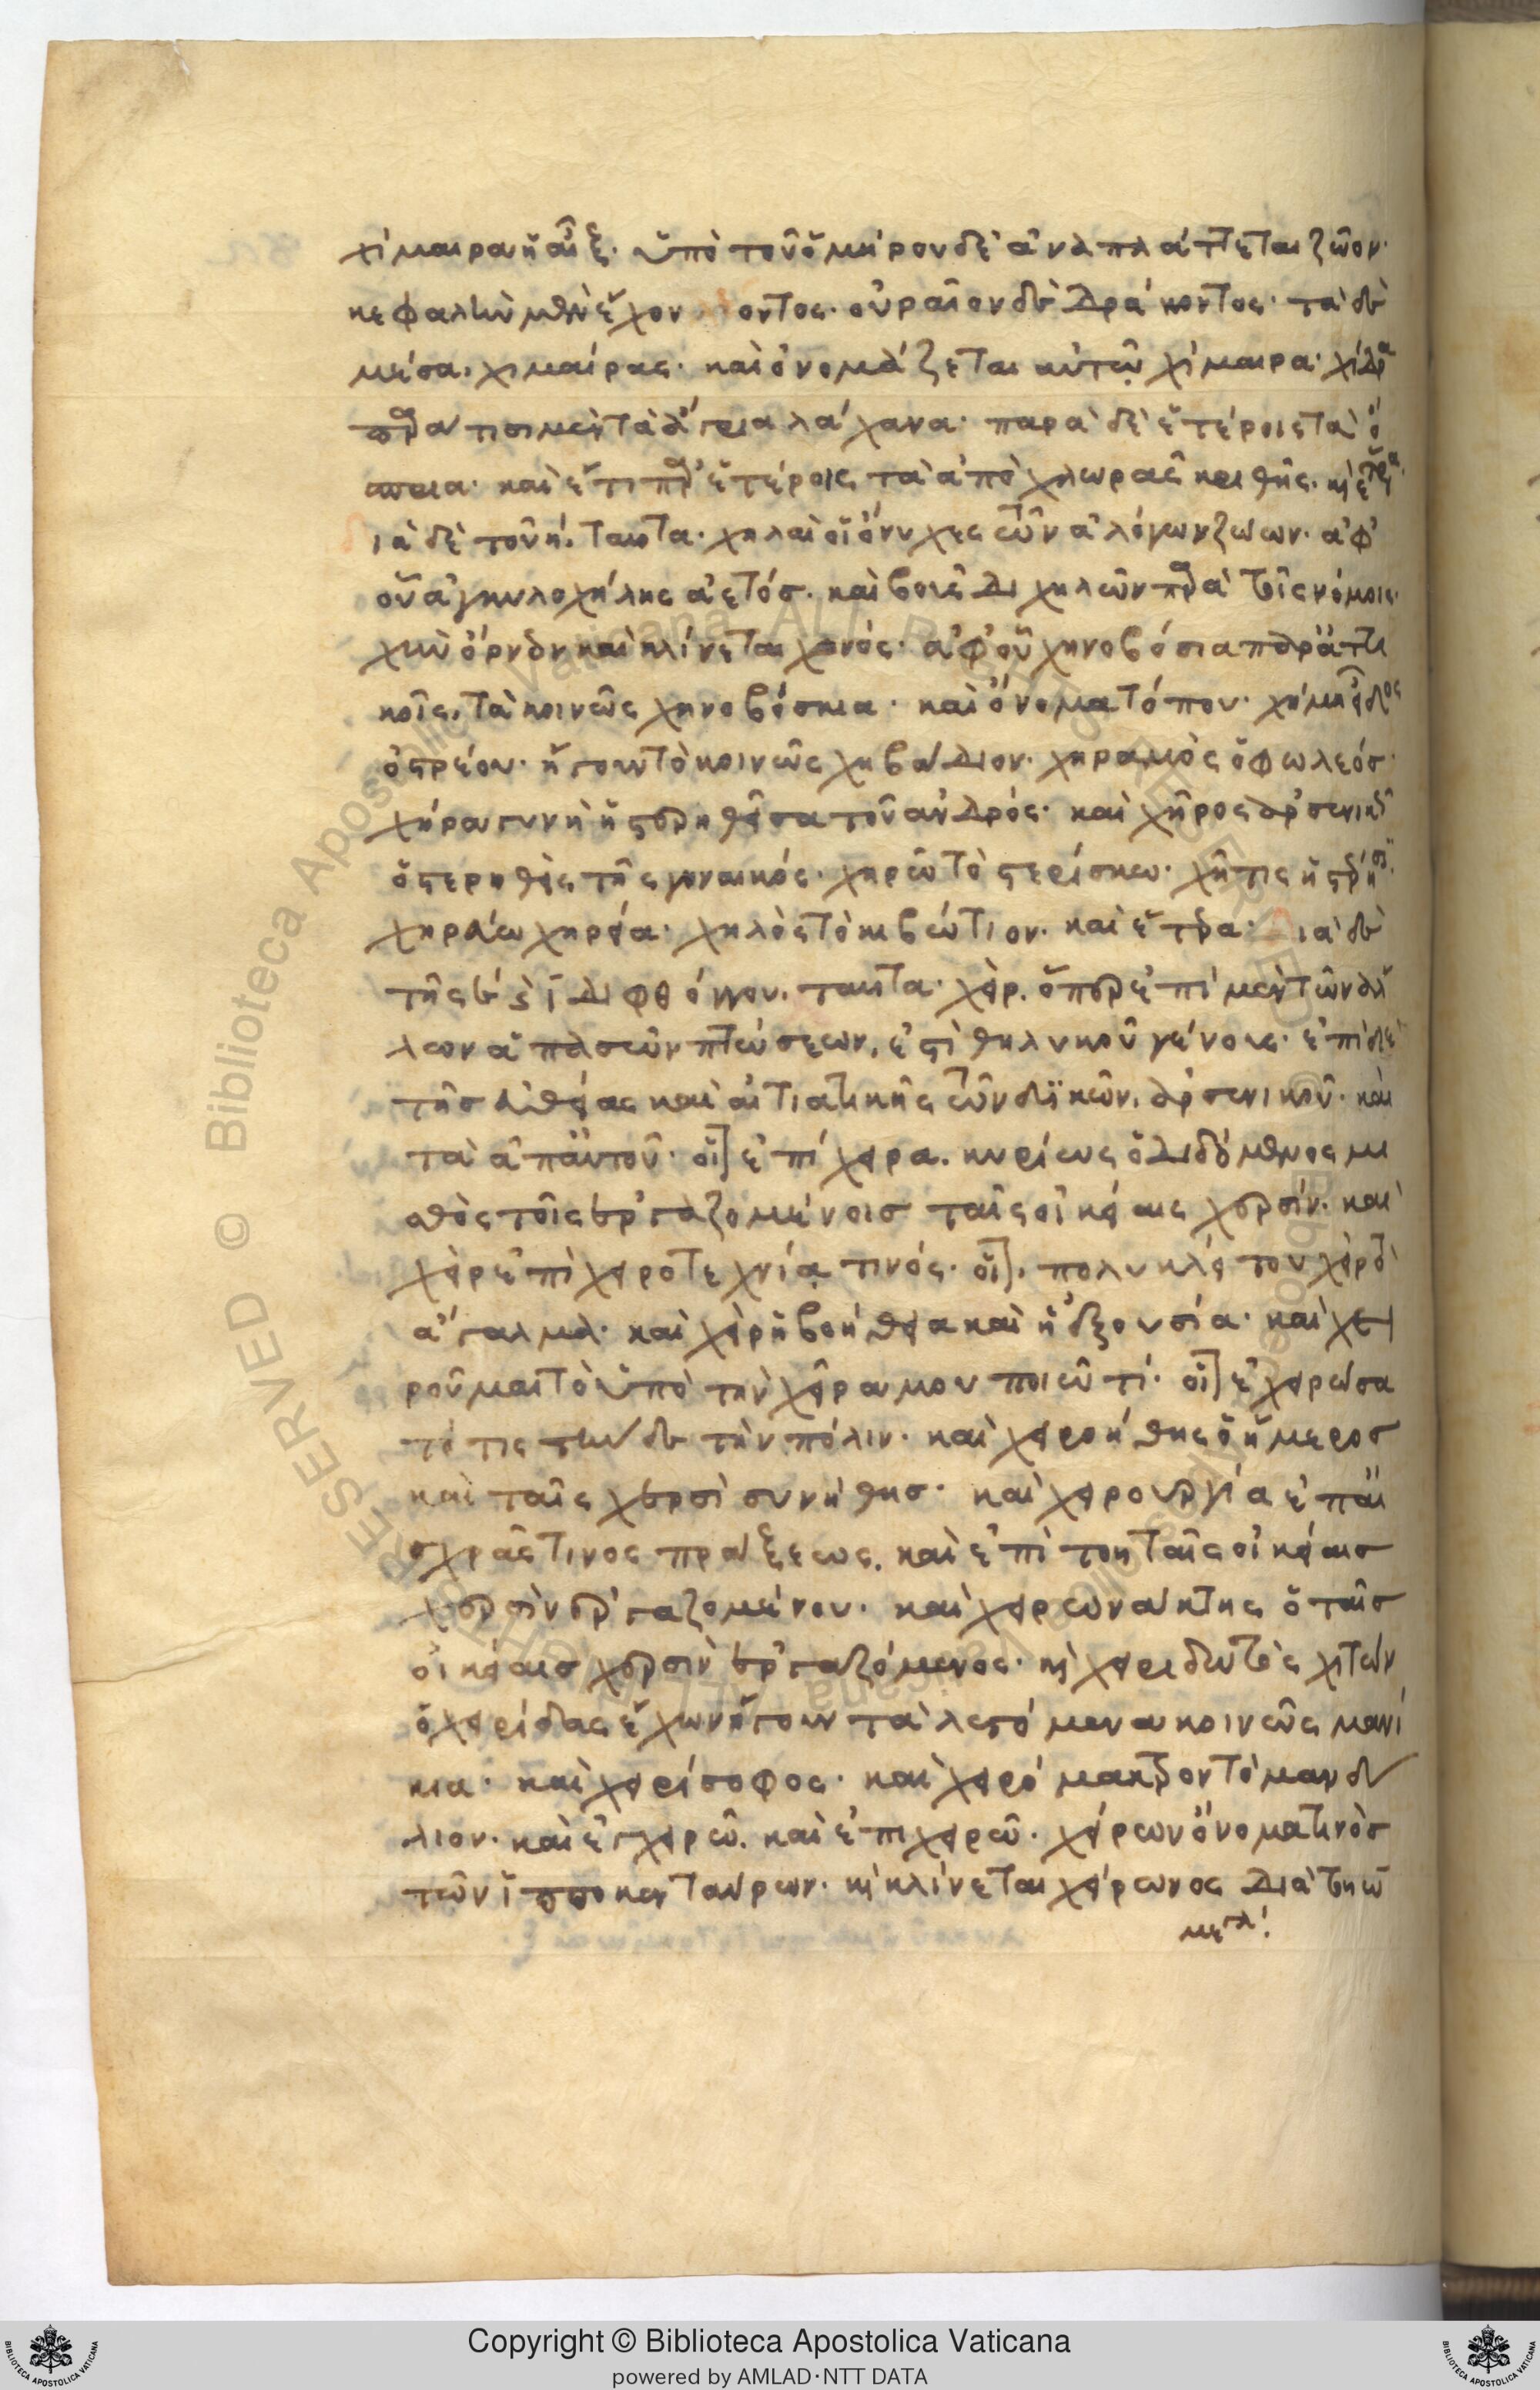 χίμαιρα ἡ αἴξ· ὑπὸ τοῦ ὁμήρου δὲ ἀναπλάττεται ζῶον·
κεφαλὴν μὲν ἔχον οντος· οὐραῖον δὲ δράκοντος· τὰ δὲ
μέσα, χιμαίρας· καὶ ὀνομάζεται αὐτῷ χίμαιρα· χίδρα
παρά τισι μὲν τὰ ἄγρια λάχανα· παρὰ δὲ ἑτέροις τὰ ὄ
σπρια· καὶ ἔτι παρ' ἑτέροις τὰ ἀπὸ χλωρᾶς κριθῆς. καὶ ἕτερα.
ιὰ δὲ τοῦ η, ταῦτα· χηλαὶ οἱ ὄνυχες τῶν ἀλόγων ζώων· ἀφ'
οὗ ἀγκυλοχήλης ἀετός. καὶ βοῦς διχηλῶν παρὰ τοῖς νόμοις·
χὴν ὄρνεον καὶ κλίνεται χηνός· ἀφ' οὗ χηνοβόσια παρ' ἀττι
κοῖς, τὰ κοινῶς χηνοβόσκια· καὶ ὄνομα τόπου· χήμη εἶδος
ὀστρέου· ἤγουν τὸ κοινῶς χηβάδιον· χηραμὸς ὁ φωλεός·
χήρα γυνὴ ἡ στερηθεῖσα τοῦ ἀνδρός· καὶ χῆρος ἀρσενικῶς
ὁ στερηθεὶς τῆς γυναικός· χηρῶ τὸ στερίσκω· χῆτις ἡ στέρησις·
χηρεύω χηρεία· χηλὸς τὸ κιβώτιον· καὶ ἕτερα· ιὰ δὲ
τῆς ει διφθόγγου, ταῦτα· χείρ. ὅπερ ἐπὶ μὲν τῶν ἄλ
λων ἁπασῶν πτώσεων, ἐστὶ θηλυκοῦ γένους· ἐπὶ δὲ
τῆς εὐθείας καὶ αἰτιατικῆς τῶν δυϊκῶν, ἀρσενικοῦ· καὶ
τὰ ἀπ' αὐτοῦ· οἷον ἐπίχειρα. κυρίως ὁ διδόμενος μι
σθὸς τοῖς ἐργαζομένοις ταῖς οἰκείαις χερσίν· καὶ
χεὶρ ἐπὶ χειροτεχνίᾳ τινός· οἷον, πολυκλείτου χεὶρ τὸ
ἄγαλμα· καὶ χεὶρ ἡ βοήθεια καὶ ἡ ἐξουσία· καὶ χει
ροῦμαι τὸ ὑπὸ τὴν χεῖρα μου ποιῶ τί· οἷον ἐχειρώσα
τό τις τήνδε τὴν πόλιν· καὶ χειροήθης ὁ ἥμερος
καὶ ταῖς χερσὶ συνήθης· καὶ χειρουργία ἐπ' αἰ
σχρᾶς τινος πράξεως, καὶ ἐπὶ του ταῖς οἰκείαις
χερσὶν ἐργαζομένου· καὶ χειρωνάκτης ὁ ταῖς
οἰκείαις χερσὶν ἐργαζόμενος· καὶ χειριδωτὸς χιτών
ὁ χειρίδας ἔχων ἤγουν τὰ λεγόμενα κοινῶς μανί
κια· καὶ χειρίσοφος· καὶ χειρόμακτρον τὸ μανδύ
λιον· καὶ ἐγχειρῶ. καὶ ἐπιχειρῶ· χείρων ὄνομά τινος
τῶν ἱπποκενταύρων· καὶ κλίνεται χείρωνος διὰ τοῦ ω
μεγάλου